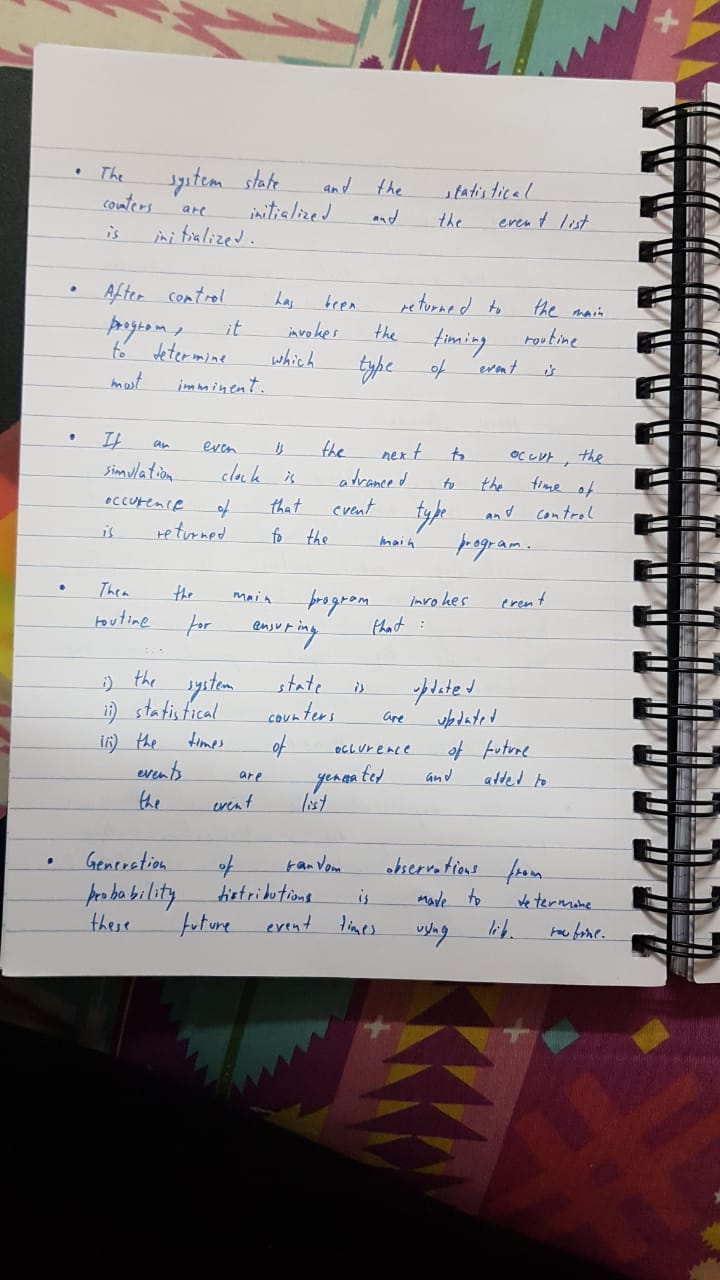 • The system state and the statistical
counters are initialized and the event list
is initialized.
• After control has been returned to the main
program, it invokes the timing routine
to determine which type of event is
most imminent.
• If an even is the next to occur, the
simulation clock is advanced to the time of
occurence of that event type and control
is returned to the main program.
• Then the main program invokes event
routine for ensuring that :
i) the system state is updated
ii) statistical counters are updated
iii) the times of occurence of future
events are generated and added to
the event list
• Generation of random observations from
probability distributions is made to determine
these future event times using lib. routine.